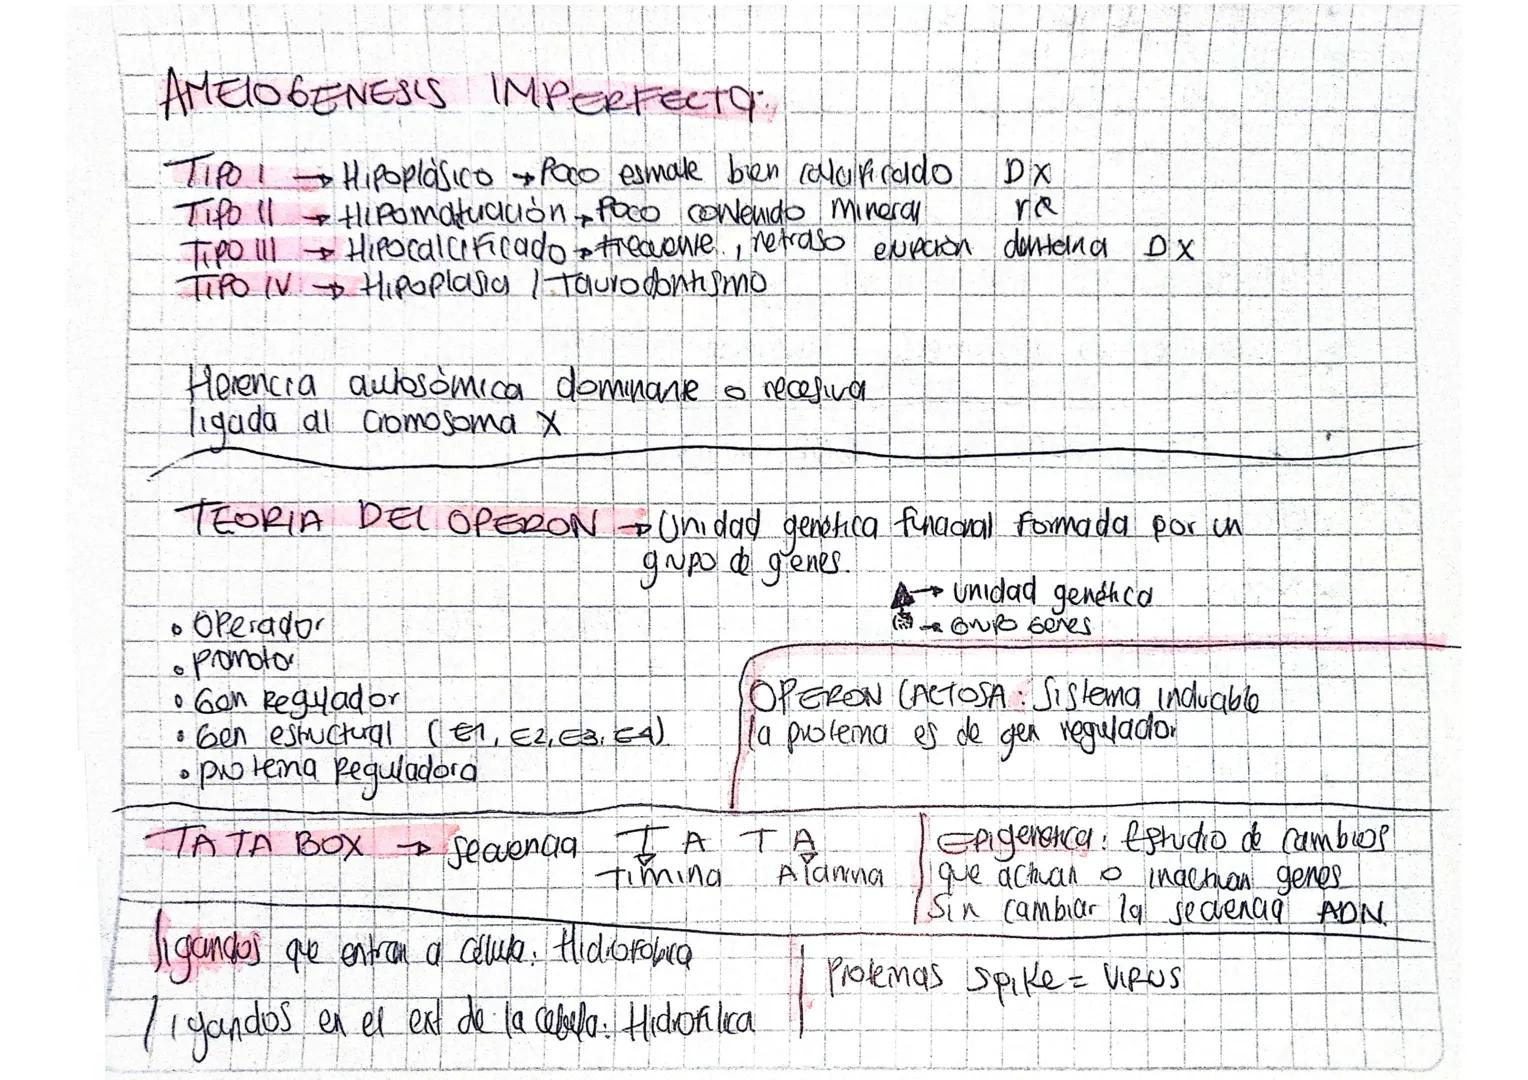 AMELOGENESIS IMPERFECTA:
TIPO I → Hipoplásico → Poco esmalte bien calcificado DX
TIPO II → Hipomaturación → Poco contenido mineral
TIPO III → Hipocalcificado → frecuente, retraso erupción dentaria DX
TIPO IV → Hipoplasia / Taurodontismo
Herencia autosómica dominante o recesiva
ligada al cromosoma X
TEORIA DEL OPERON → Unidad genética funcional formada por un
grupo de genes.
→ unidad genética
→ Grupo Genes
• Operador
• promotor
• Gen Regulador
• Gen estructural (E1, E2, E3, E4)
• proteina Reguladora
OPERON LACTOSA: Sistema inducible
la proteina es de gen regulador
TATA BOX → secuencia T A T A
Timina Alanina
Epigenetica: Estudio de cambios
que activan o inactivan genes
Sin cambiar la secuencia ADN
ligandos que entran a célula: Hidrofobica
ligandos en el ext de la celula: Hidrofilica
Proteinas Spike = VIRUS